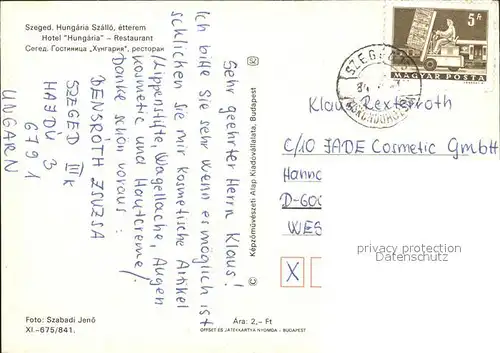 Szeged, Hungária Szálló, étterem
Hotel "Hungária" – Restaurant
Сегед. Гостиница „Хунгария", ресторан
Sehr geehrter Herrn Klaus!
Ich bitte Sie sehr wenn es möglich ist
schlicken Sie mir kosmetische Artikel
Lippenstifte, Wagellache, Augen
kosmetic und Hautcreme!
Danke schön voraus:
BENSRÓTH ZSUZSA
SZEGED III k
HAJDU 3
6791
UNGARN
Foto: Szabadi Jenő
XI.–675/841.
Ára: 2,– Ft
OFFSET ÉS JÁTÉKKÁRTYA NYOMDA – BUDAPEST
© Képzőművészeti Alap Kiadóvállalata, Budapest ©
5 Ft
MAGYAR POSTA
SZEGED
Klaus Rexteroth
C/10 JADE Cosmetic GmbH
Hanno
D-600
WES
X
privacy protection
Datenschutz